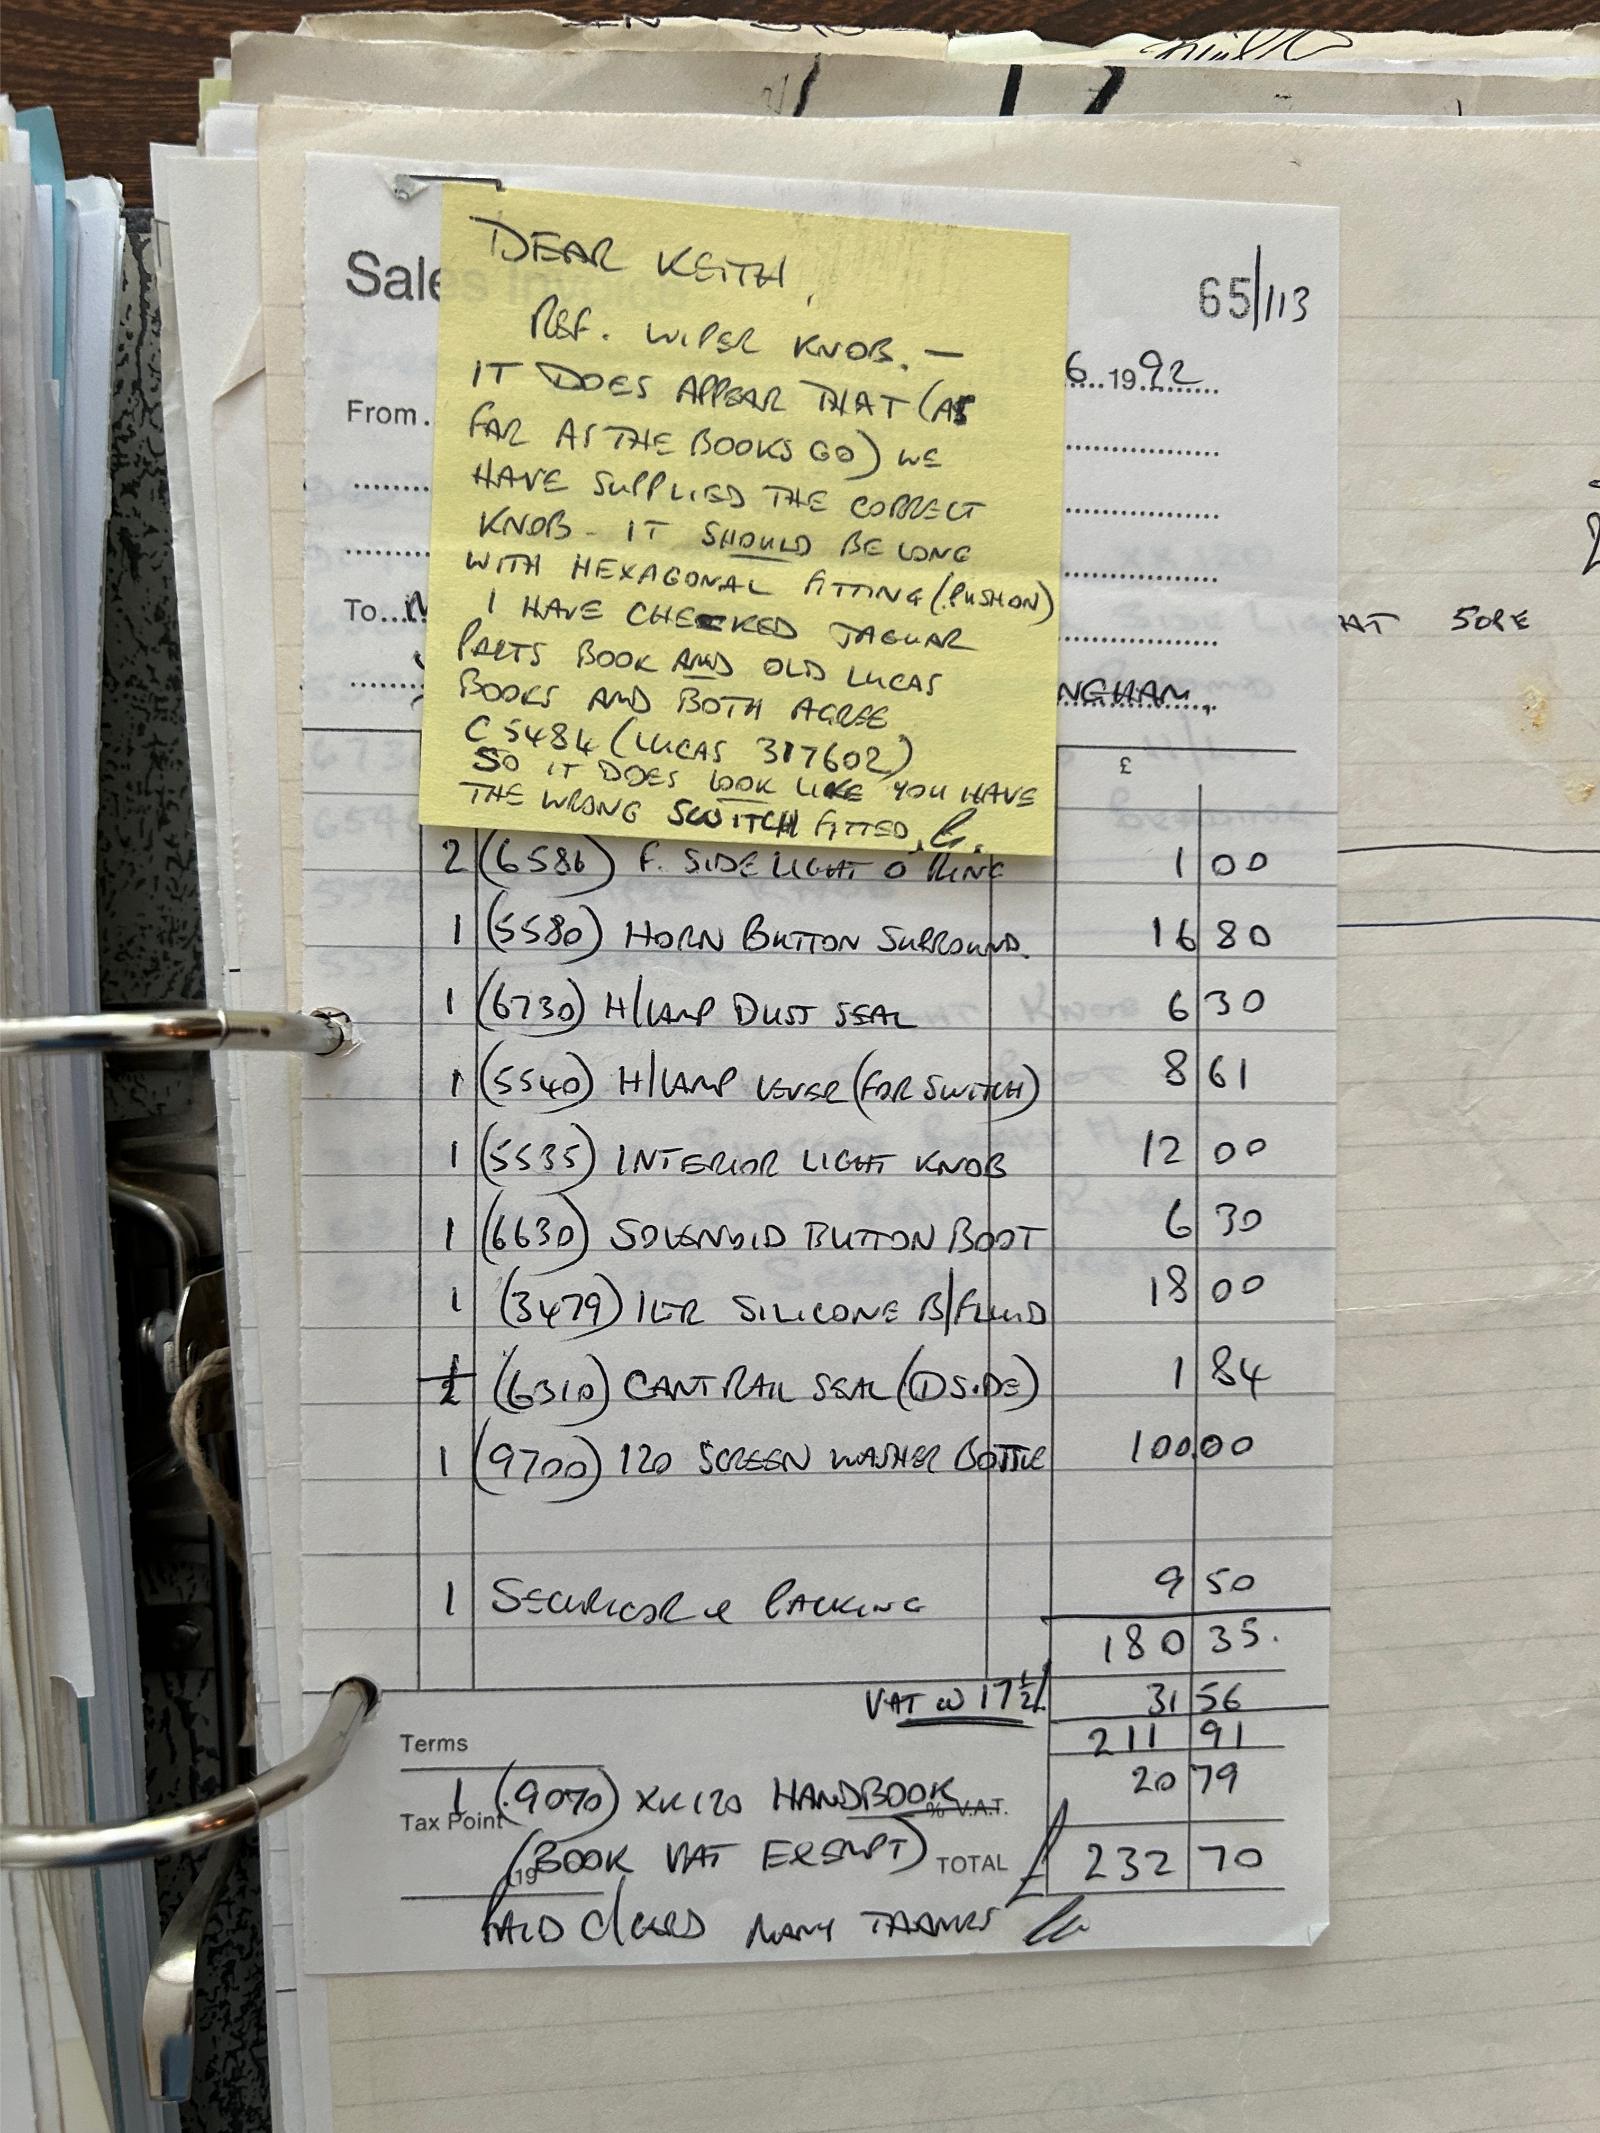 Sales Invoice
65/113
DEAR KEITH,
REF. WIPER KNOB. —
IT DOES APPEAR THAT (AS
FAR AS THE BOOKS GO) WE
HAVE SUPPLIED THE CORRECT
KNOB - IT SHOULD BE LONG
WITH HEXAGONAL FITTING (PUSH ON)
I HAVE CHECKED JAGUAR
PARTS BOOK AND OLD LUCAS
BOOKS AND BOTH AGREE
C5484 (LUCAS 317602)
SO IT DOES LOOK LIKE YOU HAVE
THE WRONG SWITCH FITTED.
6 1992
From
To
NGHAM.
AT 50PE
£
2 (6586) F. SIDE LIGHT O RING 1 00
1 (5580) HORN BUTTON SURROUND. 16 80
1 (6730) H/LAMP DUST SEAL 6 30
1 (5540) H/LAMP LEVER (FOR SWITCH) 8 61
1 (5535) INTERIOR LIGHT KNOB 12 00
1 (6630) SOLENOID BUTTON BOOT 6 30
1 (3479) 1LTR SILICONE B/FLUID 18 00
1/2 (6310) CANTRAIL SEAL (DSIDE) 1 84
1 (9700) 120 SCREEN WASHER BOTTLE 100.00
1 SECURICOR & PACKING 9 50
180 35.
VAT @ 17 1/2 31 56
211 91
Terms
1 (9070) XK120 HANDBOOK 20 79
% V.A.T.
Tax Point
(BOOK VAT EXEMPT) TOTAL £ 232 70
19
PAID C/CARD MANY THANKS